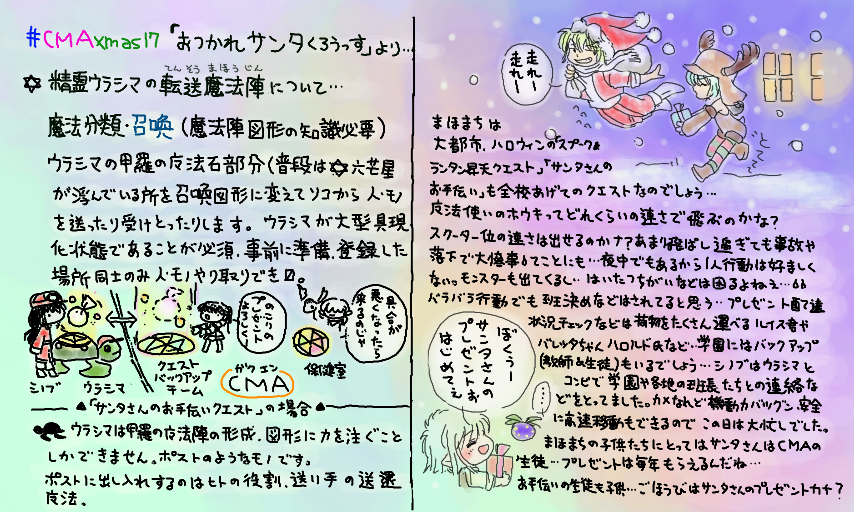 #CMAxmas17「おつかれサンタくろうっす」より…
✡精霊ウラシマの転送魔法陣について…
てんそう まほうじん
魔法分類・召喚（魔法陣図形の知識必要）
ウラシマの甲羅の魔法石部分（普段は✡六芒星
が浮んでいる所を召喚図形に変えてソコから人・モノ
を送ったり受けとったりします。ウラシマが大型具現
化状態であることが必須、事前に準備、登録した
場所同士のみ人・モノやり取りでき□。
のこりの
プレゼント
よろしく
具合が
悪くなったら
来るのじゃ
シノブ
ウラシマ
クエスト
バックアップ
チーム
ガクエン
CMA
保健室
▲「サンタさんのお手伝いクエスト」の場合▲
ウラシマは甲羅の魔法陣の形成、図形に力を注ぐこと
しかできません。ポストのようなモノです。
ポストに出し入れするのはヒトの役割、送り手の送還
魔法。
走れー
走れー
まほまちは
大都市、ハロウィンの"スプーク&
ランタン昇天クエスト」「サンタさんの
お手伝い」も全校あげてのクエストなのでしょう…
魔法使いのホウキってどれくらいの速さで飛ぶのかな？
スクーター位の速さは出せるのかナ？あまり飛ばし過ぎても事故や
落下で大惨事ってことにも…夜中でもあるから1人行動は好ましく
ない。モンスターも出てくるし…はいたつちがいなどは困るよねぇ…
バラバラ行動でも班決めなどはされてると思う…プレゼント配達
状況チェックなどは荷物をたくさん運べるルイス君や
バレッタちゃん ハロルド氏など、学園にはバックアップ
(教師&生徒)もいるでしょう…シノブはウラシマと
コンビで学園や各地の班長たちとの連絡な
どをとってました。カメなんど機動力バツグン、安全
に高速移動もできるので この日は大忙しでした。
まほまちの子供たちにとってはサンタさんはCMAの
生徒…プレゼントは毎年もらえるんだね…
お手伝いの生徒も子供…ごほうびはサンタさんのプレゼントカナ？
ぼくぅー
サンタさんの
プレゼントお
はじめてぇ
…